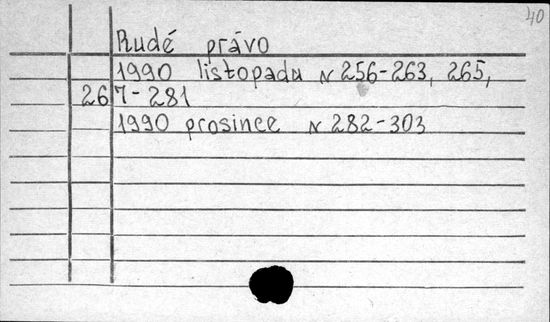 40
Rudé právo
1990 listopadu N 256-263, 265,
267-281
1990 prosince N 282-303